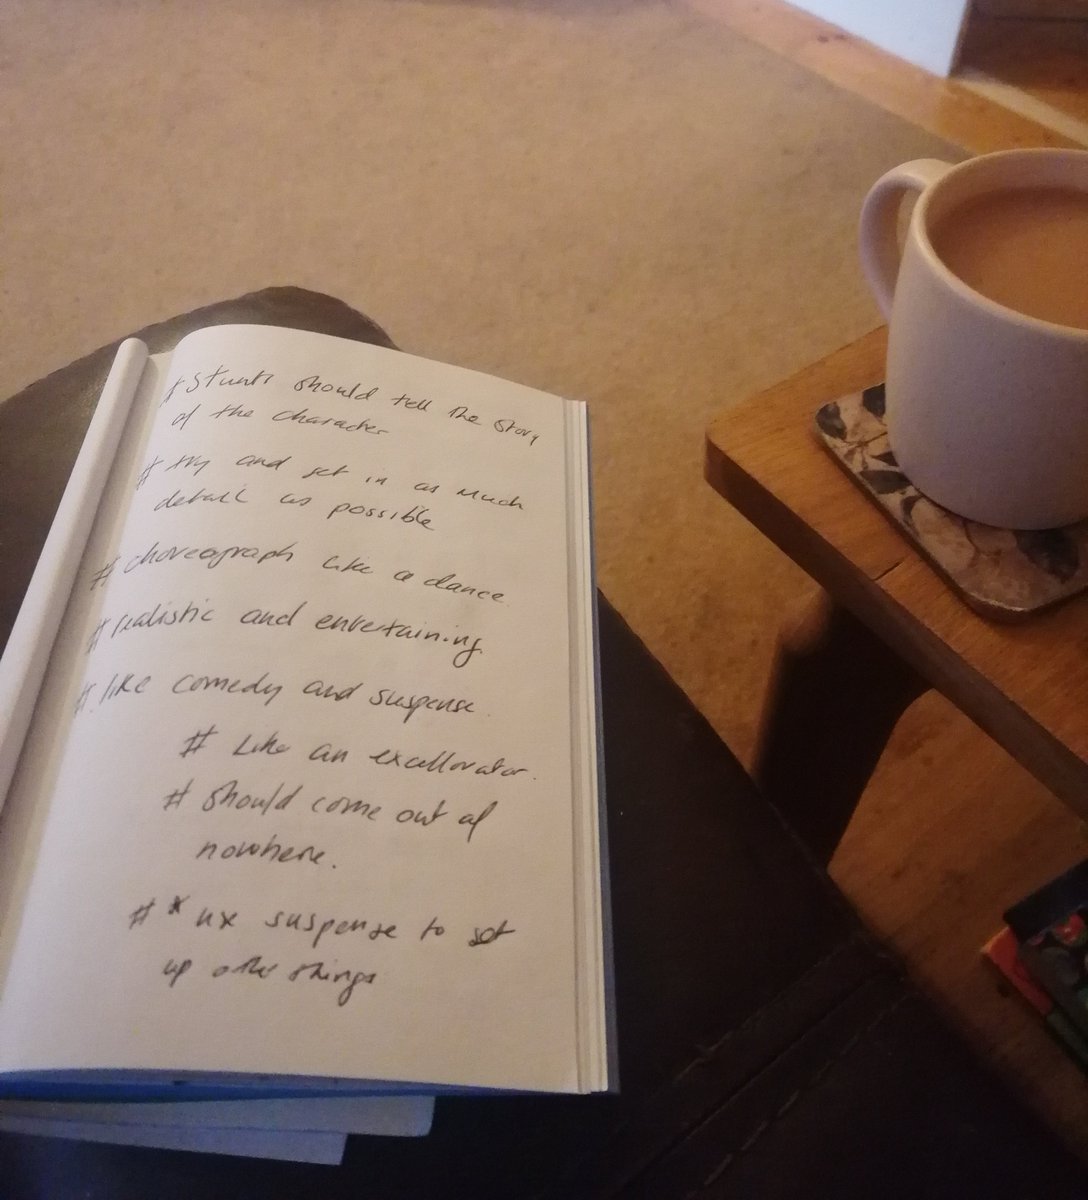 # Stunts should tell the story
of the character
# try and set in as much
detail as possible
# choreograph like a dance
# realistic and entertaining
# like comedy and suspense
# Like an excellorator.
# should come out of
nowhere.
# * use suspense to set
up other things